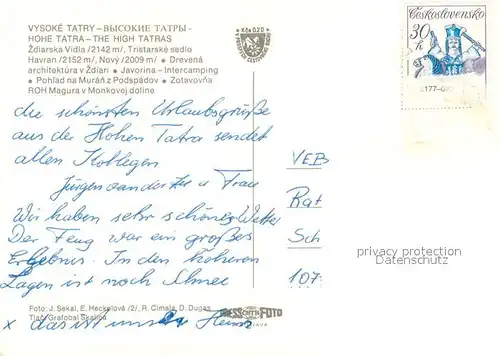 VYSOKÉ TATRY – ВЫСОКИЕ ТАТРЫ -
HOHE TATRA – THE HIGH TATRAS
Ždiarska Vidla /2142 m/, Tristarské sedlo
Havran /2152 m/, Nový /2009 m/ • Drevená
architektúra v Ždiari • Javorina – Intercamping
• Pohľad na Muráň z Podspádov • Zotavovňa
ROH Magura v Monkovej doline
Kčs 0,20
Československo
30 h
die schönsten Urlaubsgrüße
aus der Hohen Tatra sendet
allen Kollegen
Jürgen u Frau
Wir haben sehr schönes Wetter
Der Flug war ein großes
Erlebnis. In den höheren
Lagen ist noch Schnee
VEB
Rat
Sch
107
privacy protection
Datenschutz
Foto: J. Sekal, E. Heckelová /2/, R. Cimala, D. Dugas
Tlač: Grafobal Skalica
PRESSFOTO
x das ist unser Heim